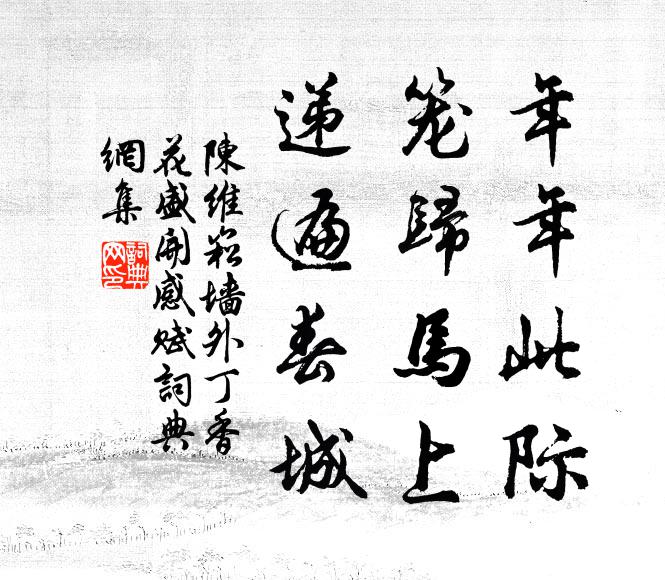 年年此际
笼歸馬上
递遍春城
陳維崧墙外丁香
花盛開感賦詞典
網集
詞典
网印